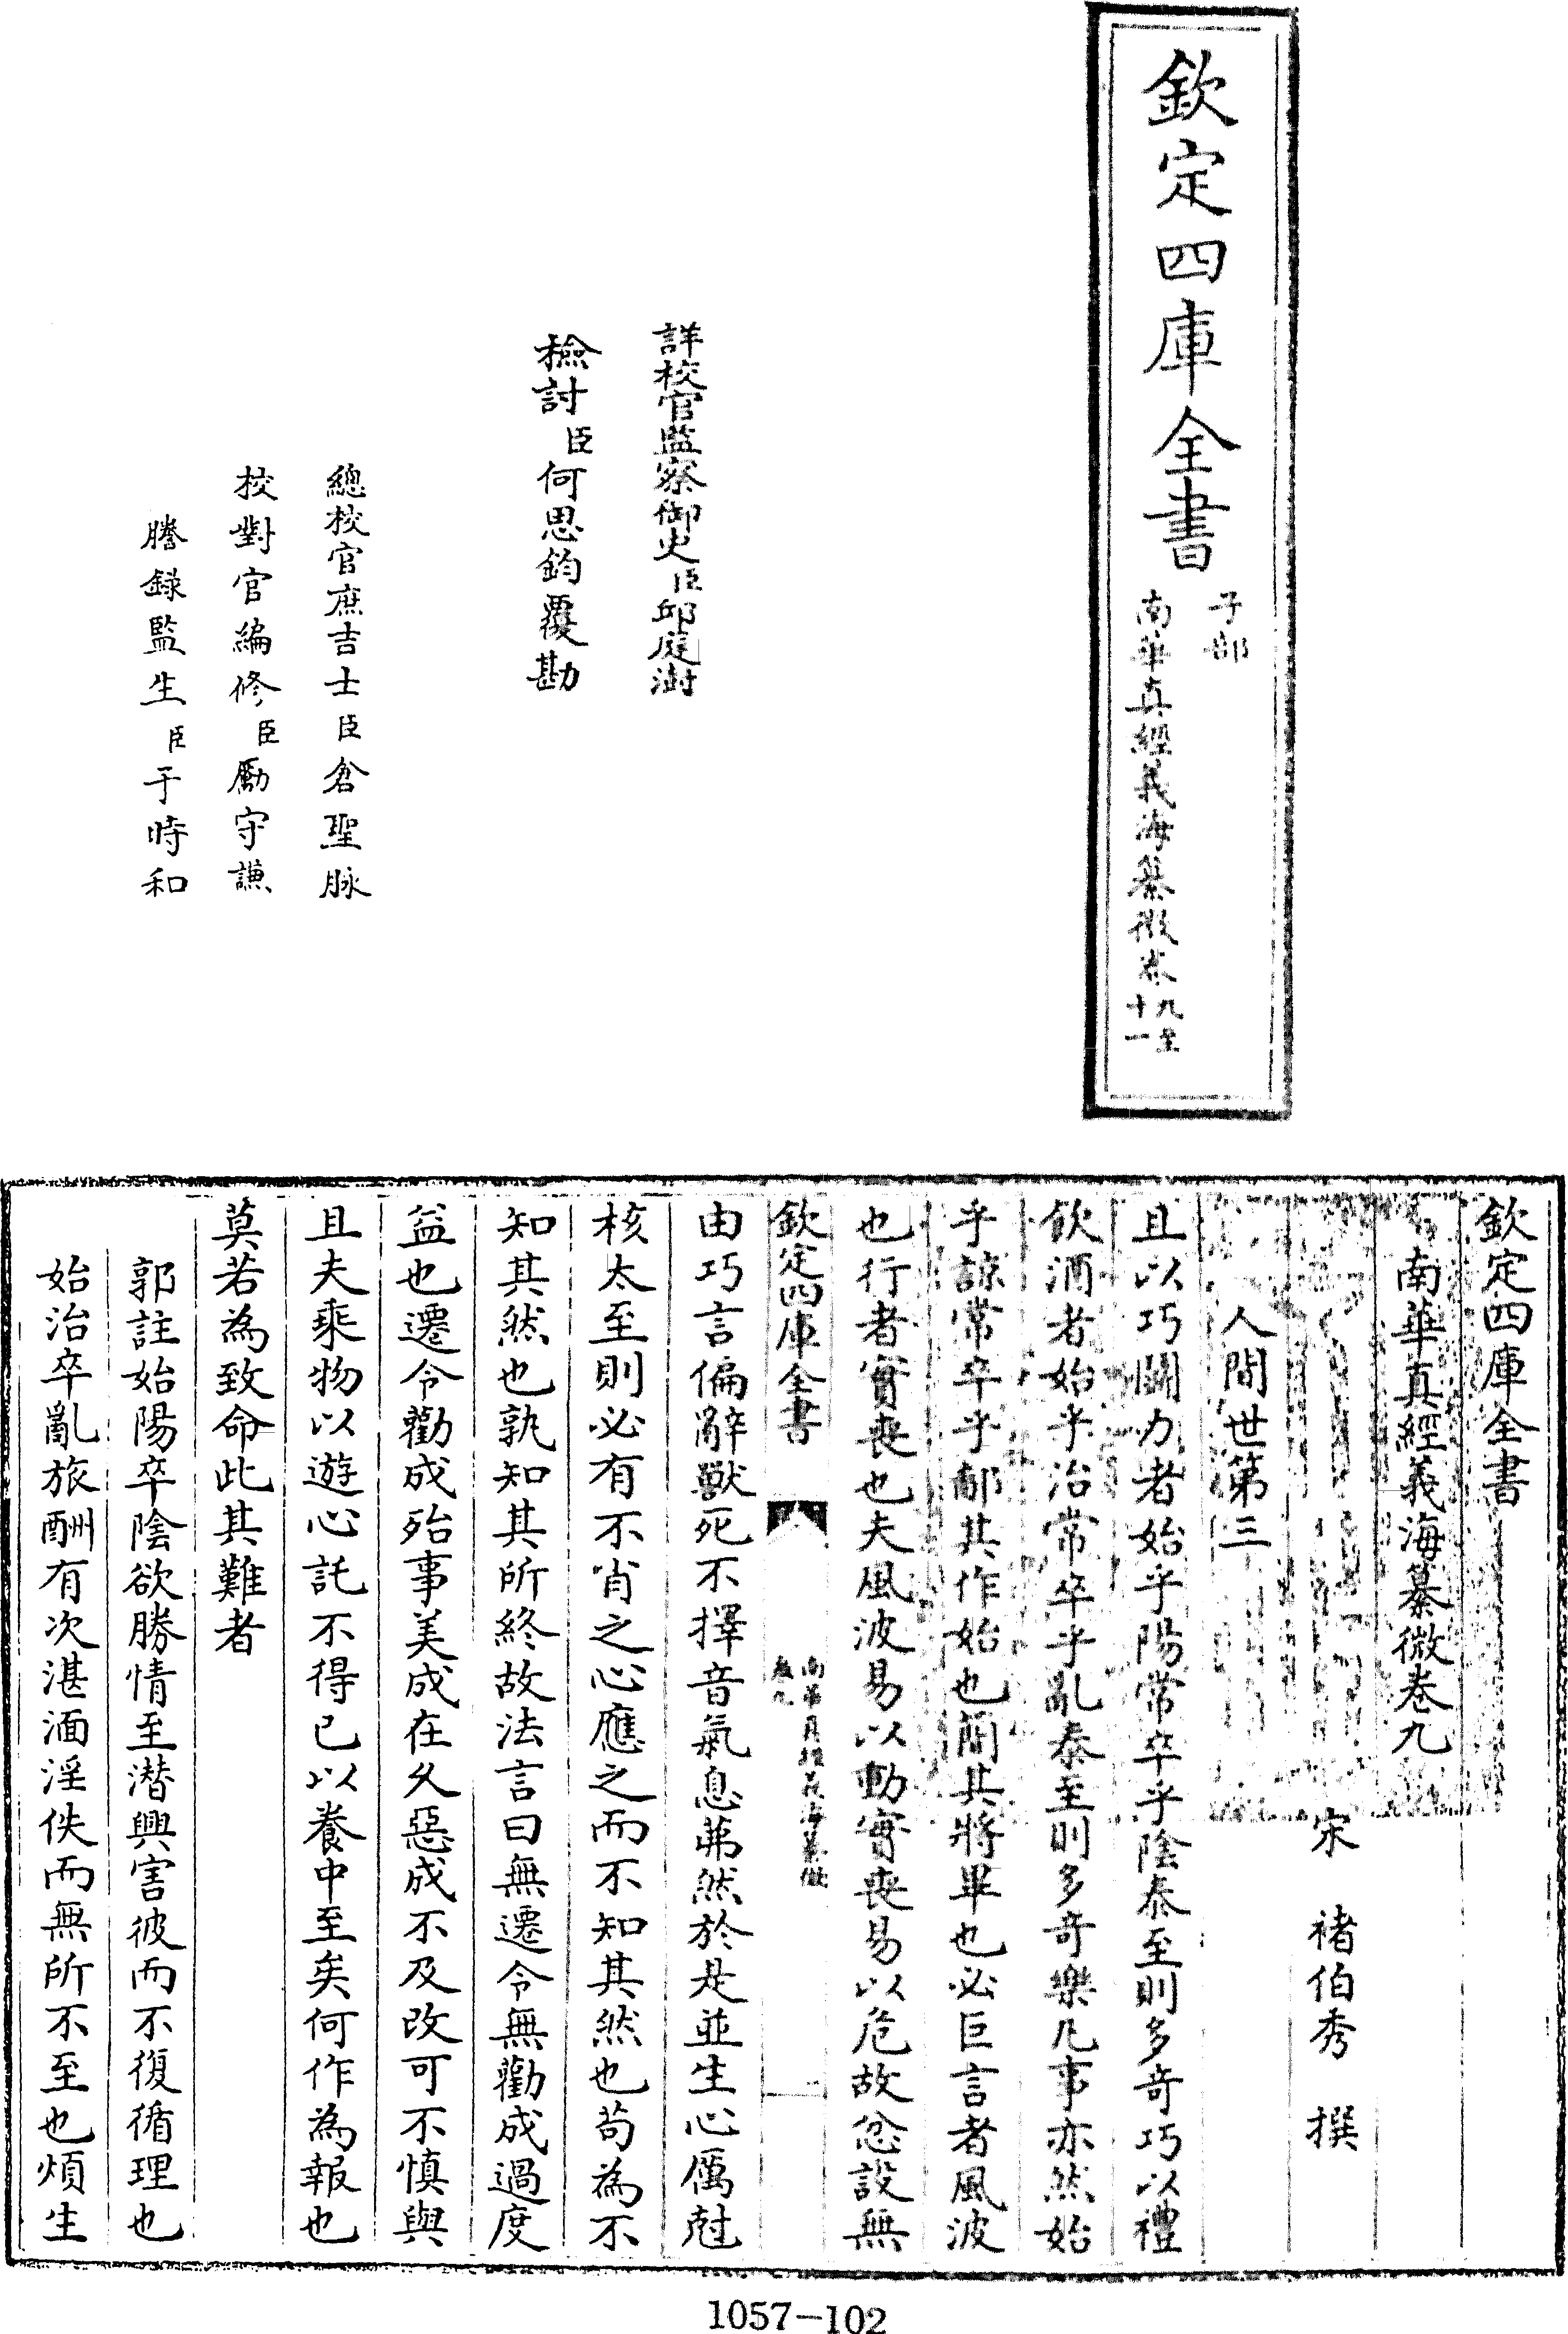 欽定四庫全書
子部
南華真經義海纂微卷
九至
十一
詳校官監察御史臣邱庭澍
檢討臣何思鈞覆勘
總校官庶吉士臣倉聖脉
校對官編修臣勵守謙
謄錄監生臣于時和
欽定四庫全書
南華真經義海纂微卷九
宋 褚伯秀 撰
人間世第三
且以巧鬭力者始乎陽常卒乎陰泰至則多奇巧以禮
飲酒者始乎治常卒乎亂泰至則多奇樂凡事亦然始
乎諒常卒乎鄙其作始也簡其將畢也必巨言者風波
也行者實喪也夫風波易以動實喪易以危故忿設無
欽定四庫全書
南華真經義海纂微
卷九
由巧言偏辭獸死不擇音氣息茀然於是並生心厲尅
核太至則必有不肖之心應之而不知其然也苟為不
知其然也孰知其所終故法言曰無遷令無勸成過度
益也遷令勸成殆事美成在久惡成不及改可不慎與
且夫乘物以遊心託不得已以養中至矣何作為報也
莫若為致命此其難者
郭註始陽卒陰欲勝情至潛興害彼而不復循理也
始治卒亂旅酬有次湛湎淫佚而無所不至也煩生
1057-102